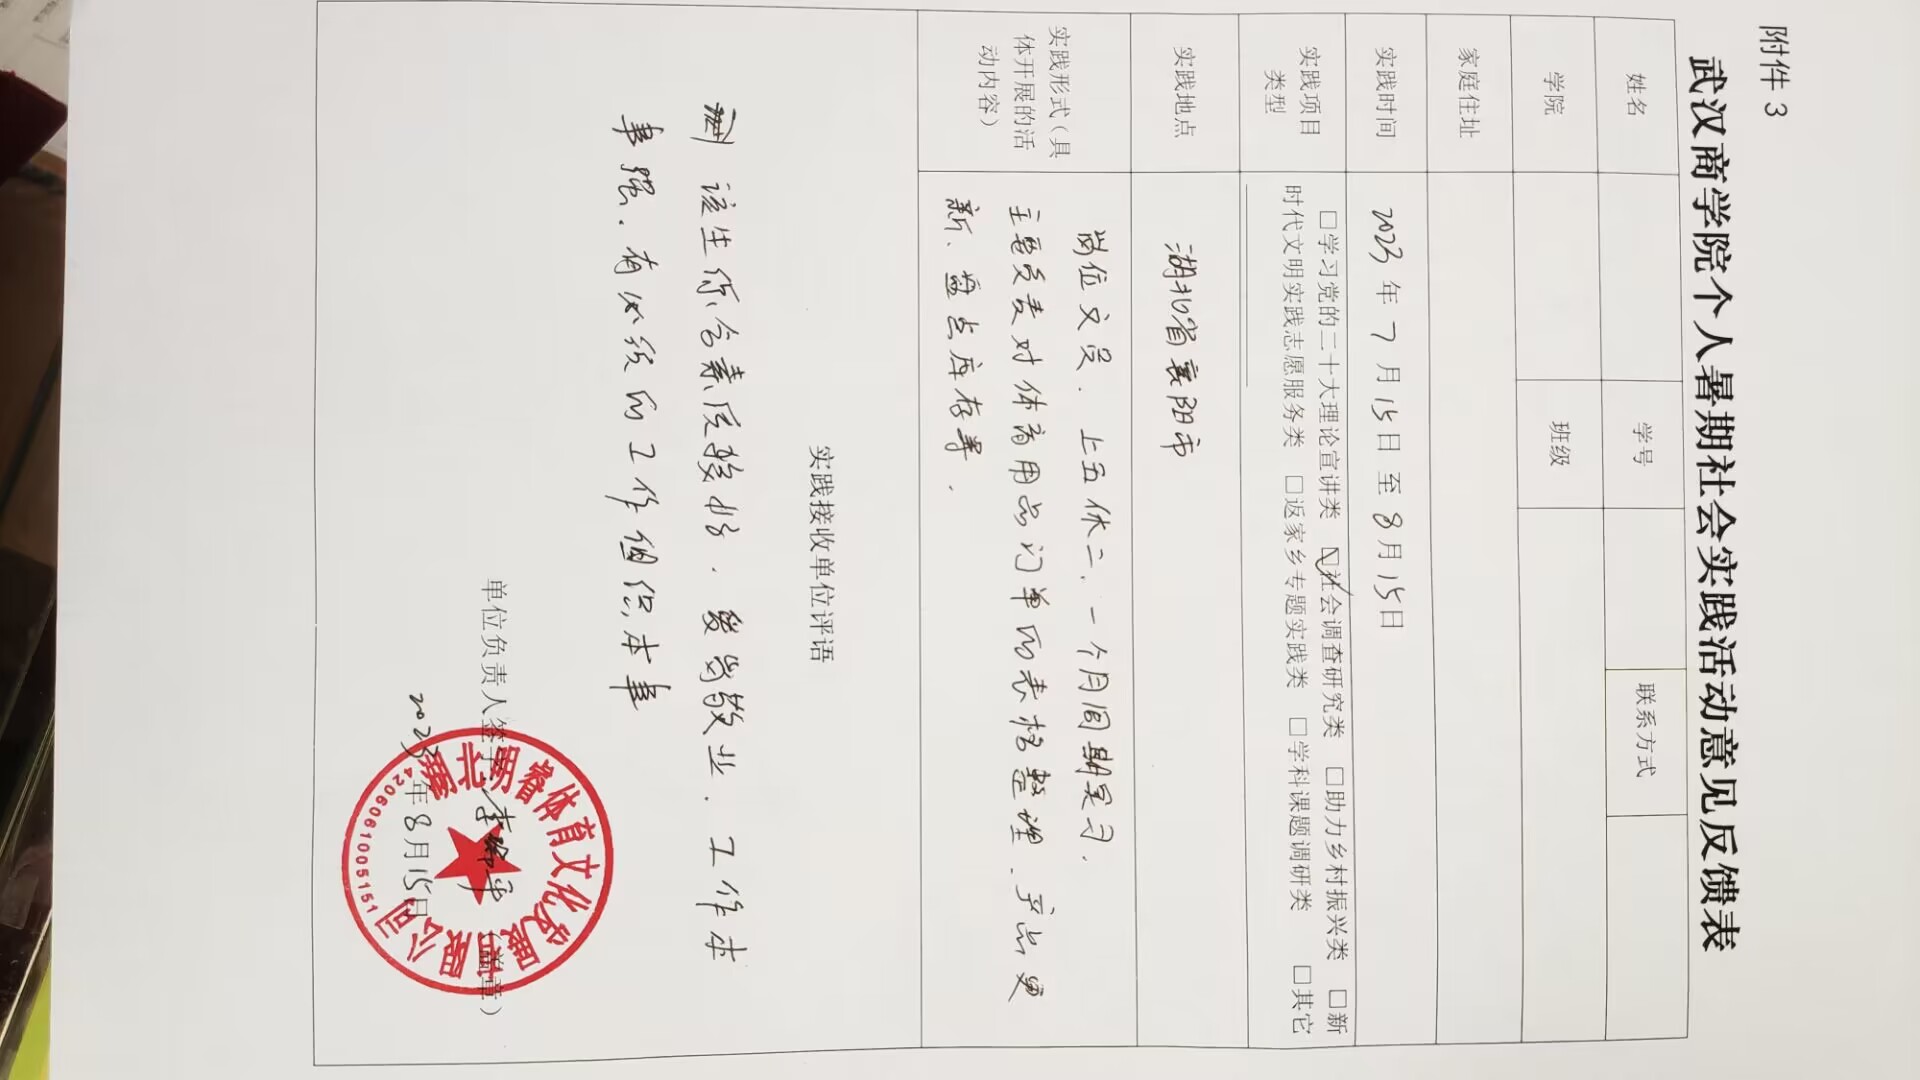 附件 3
武汉商学院个人暑期社会实践活动意见反馈表
姓名 学号 联系方式
学院 班级
家庭住址
实践时间 2023 年 7 月 15日 至 8 月 15日
实践项目
类型
□学习党的二十大理论宣讲类 ☑社会调查研究类 □助力乡村振兴类 □新
时代文明实践志愿服务类 □返家乡专题实践类 □学科课题调研类 □其它
实践地点 湖北省襄阳市
实践形式（具
体开展的活
动内容）
岗位文员．上五休二．一个月间期实习．
主要负责对体育用品订单的表格整理．产品更
新．盘点库存等．
实践接收单位评语
该生综合素质较好．爱岗敬业．工作本
事强．有必须的工作组织本事
单位负责人签字： （盖章）
2023 年 8 月 15日
湖北明睿体育文化发展有限公司
4206061005151